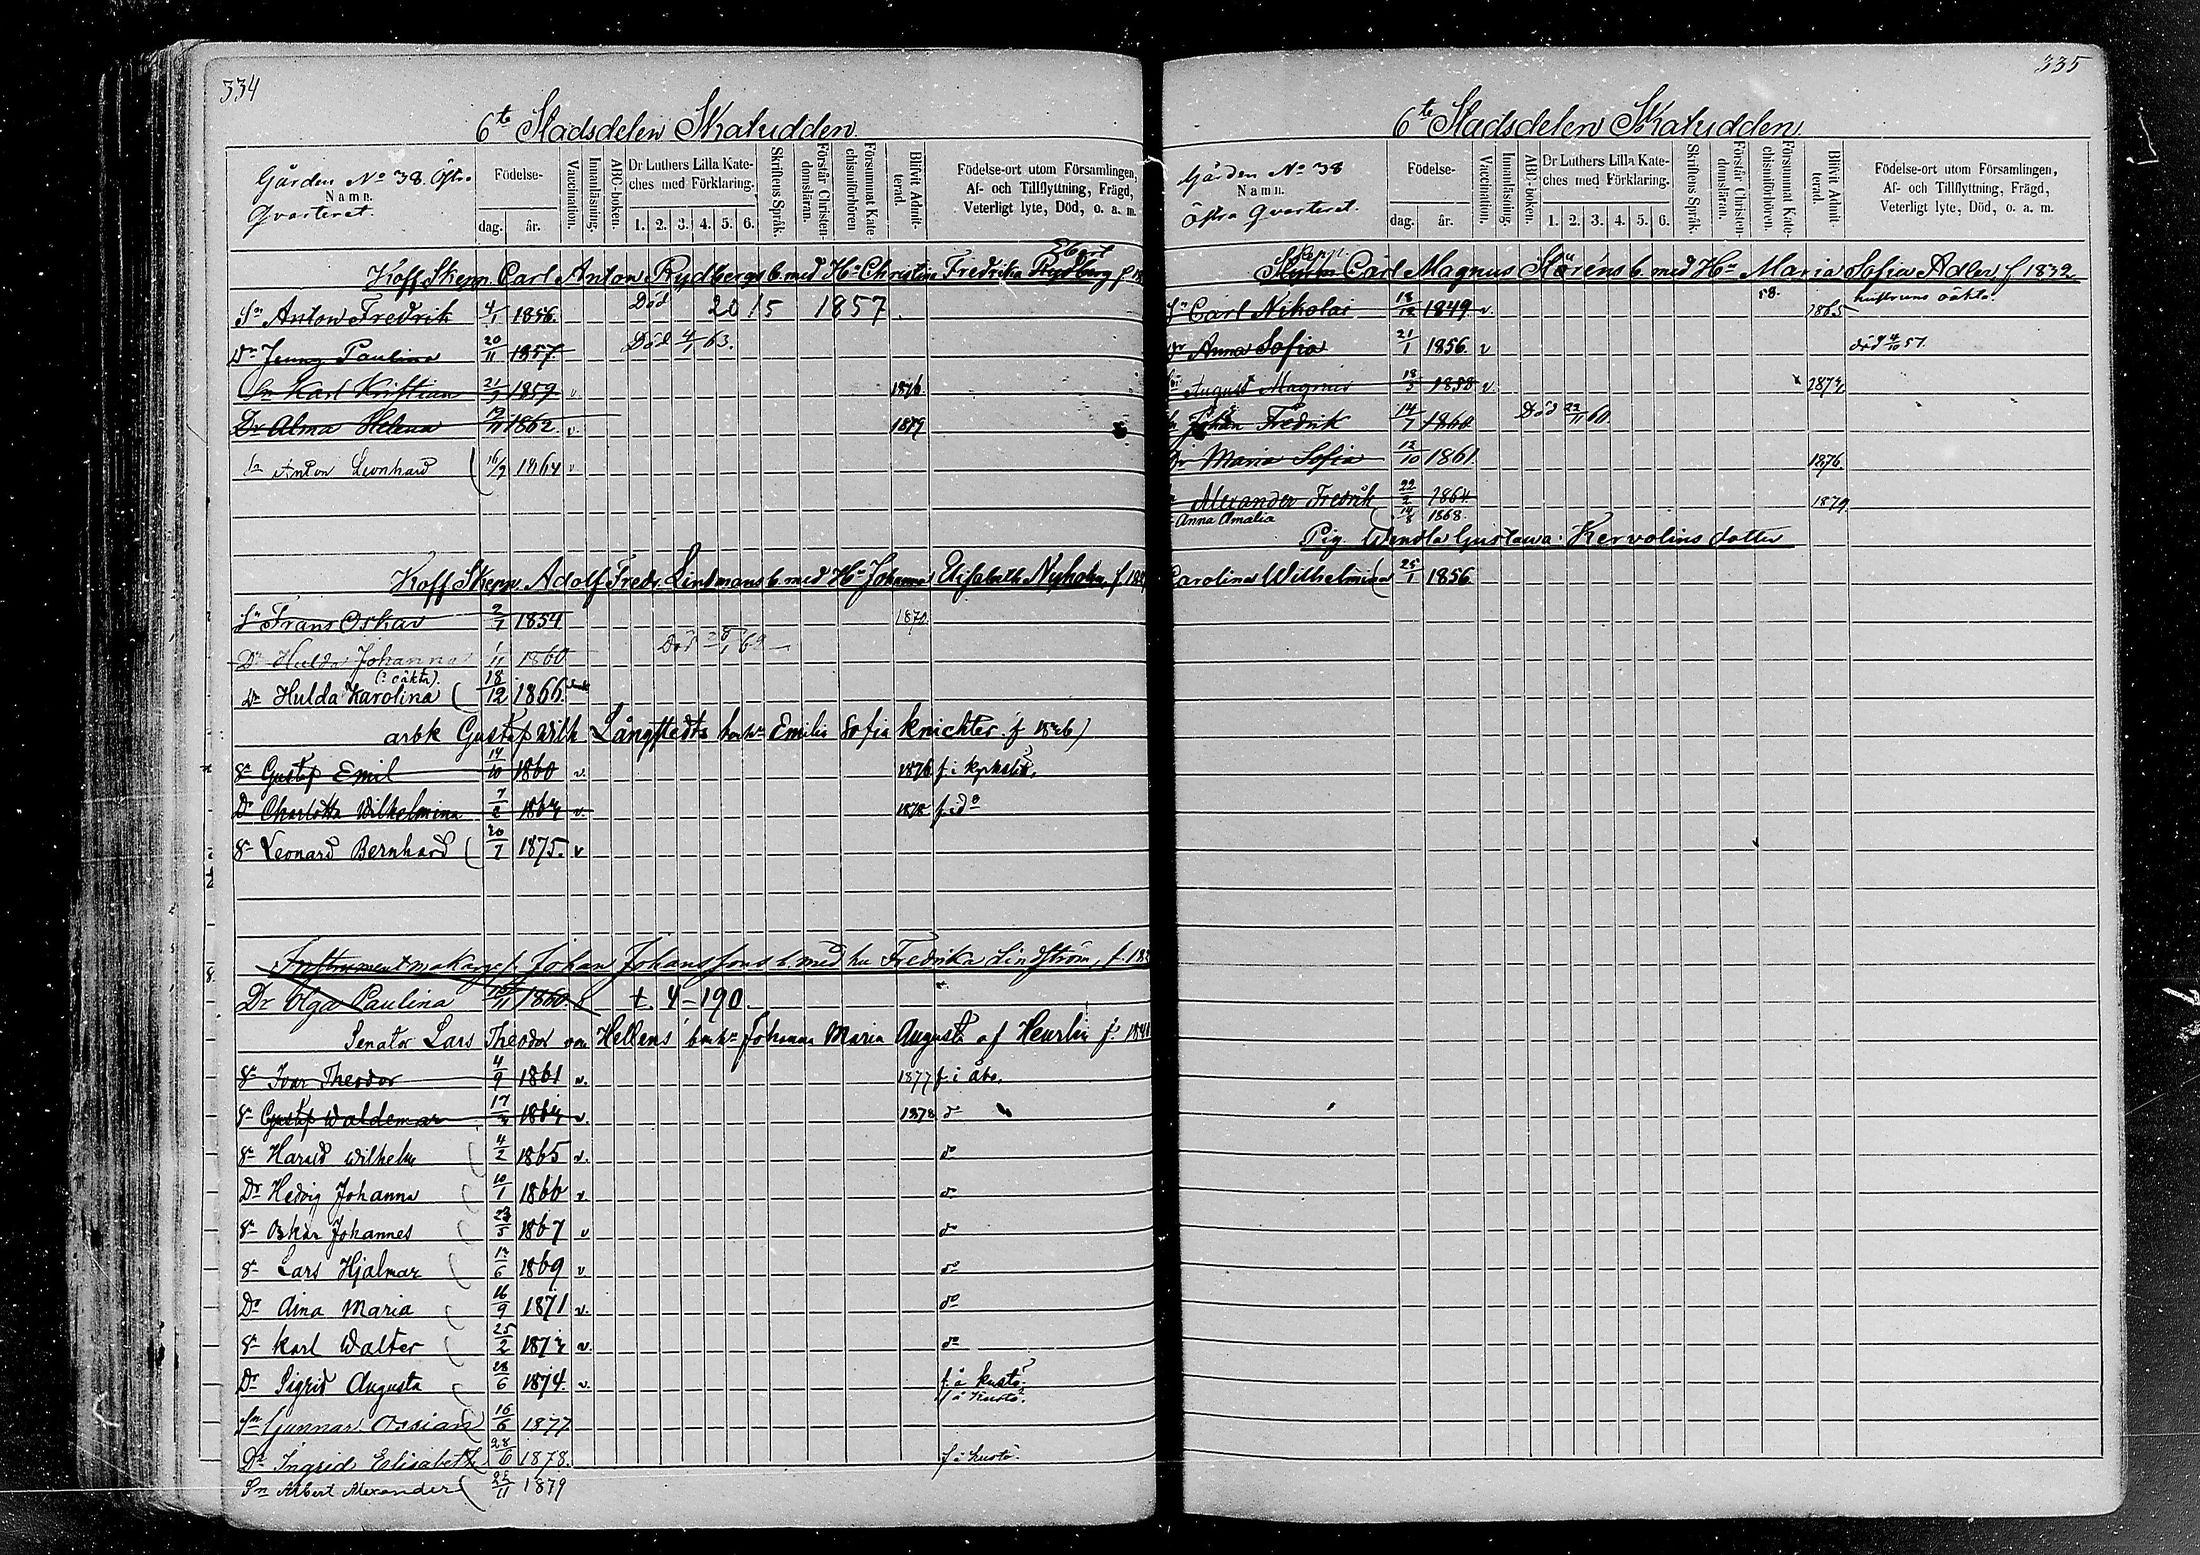 334
6te Stadsdelen Skatudden
Gården No 38. Östra
Namn.
Qvarteret.
Födelse-
dag. år.
Vaccination.
Innanläsning.
ABC-boken.
Dr Luthers Lilla Kate-
ches med Förklaring.
1. 2. 3. 4. 5. 6.
Skriftens Språk.
Förstår Christen-
domsläran.
Försummat Kate
chismiförhören
Blivit Admit-
terad.
Födelse-ort utom Församlingen,
Af- och Tillflyttning, Frägd,
Veterligt lyte, Död, o. a. m.
Ebert
Koff Skepp. Carl Anton Rydbergs b. med Hu Christina Fredrika Rydberg f
Sn Anton Fredrik 4/1 1856. Död 20 15 1857
Dr Jenny Paulina 20/11 1857 Död 4/1 63.
Sn Karl Kristian 21/9 1859 v 1876
Dr Alma Helena /11 1862 v 1879
Sn Anton Leonhard 16/9 1864 v
Koff Skepp. Adolf Fredr Lindmans b. med Hu Johanna Elisabeth Nyholm, f.
Sn Frans Oskar 2/1 1854 1870
Dr Hulda Johanna 1/11 1860 Död
(: oäkta)
Dr Hulda Karolina 18/12 1866
arbk Gustaf Wilh Långstedts bmhu Emilia Sofia Knichter f
Sn Gustaf Emil 14/10 1860 v. 1876 f. i Kyrkslätt.
Dr Charlotta Wilhelmina 7/2 1864 v. 1878 f. i do
Sn Leonard Bernhard 20/7 1875. v
Instrumentmakare f. Johan Johanssons b. med hu Fredrika Lindström, f.
Dr Olga Paulina /11 1860. t. 4-190
Senator Lars Theodor von Hellens bmhu Johanna Maria Augusta af Heurlin f. 1841
Sn Ivar Theodor 4/9 1861 v. 1877 f. i Åbo.
Sn Gustaf Waldemar 17/ 1863 v. 1878 do
Sn Harald Wilhelm 4/2 1865 v. do
Dr Hedvig Johanna 10/1 1866 v do
Sn Oskar Johannes 23/5 1867 v do
Sn Lars Hjalmar 12/6 1869 v do
Dr Aina Maria 16/9 1871 v. do
Sn Karl Walter 25/2 1873 v do
Dr Sigrid Augusta 28/6 1874. v. f. å Kustö.
Sn Gunnar Ossian 16/6 1877 f å Kustö.
Dr Ingrid Elisabeth 28/6 1878. f å Kustö.
Sn Albert Alexander 22/11 1879
335
6te Stadsdelen Skatudden
Gården No 38
Namn.
Östra Qvarteret.
Födelse-
dag. år.
Vaccination.
Innanläsning.
ABC-boken.
Dr Luthers Lilla Kate-
ches med Förklaring.
1. 2. 3. 4. 5. 6.
Skriftens Språk.
Förstår Christen-
domsläran.
Försummat Kate-
chismiförhören.
Blivit Admit-
terad.
Födelse-ort utom Församlingen,
Af- och Tillflyttning, Frägd,
Veterligt lyte, Död, o. a. m.
Skepp.
Carl Magnus Störens b. med Hu Maria Sofia Adler f 1832
Sn Carl Nikolai 18/12 1849 v. 58. 1865 hustruns oäkta.
Dr Anna Sofia 21/1 1856. v död 4/10 57.
Sn August Magnus 18/3 1858 v. x 1874
Sn Johan Fredrik 14/7 1860 Död 22/11 60.
Dr Maria Sofia 12/10 1861. 1876
Alexander Fredrik 22/2 1864. 1879
Anna Amalia 14/8 1868.
Pig. Wendla Gustava Kervolins dotter
Carolina Wilhelmina 25/1 1856